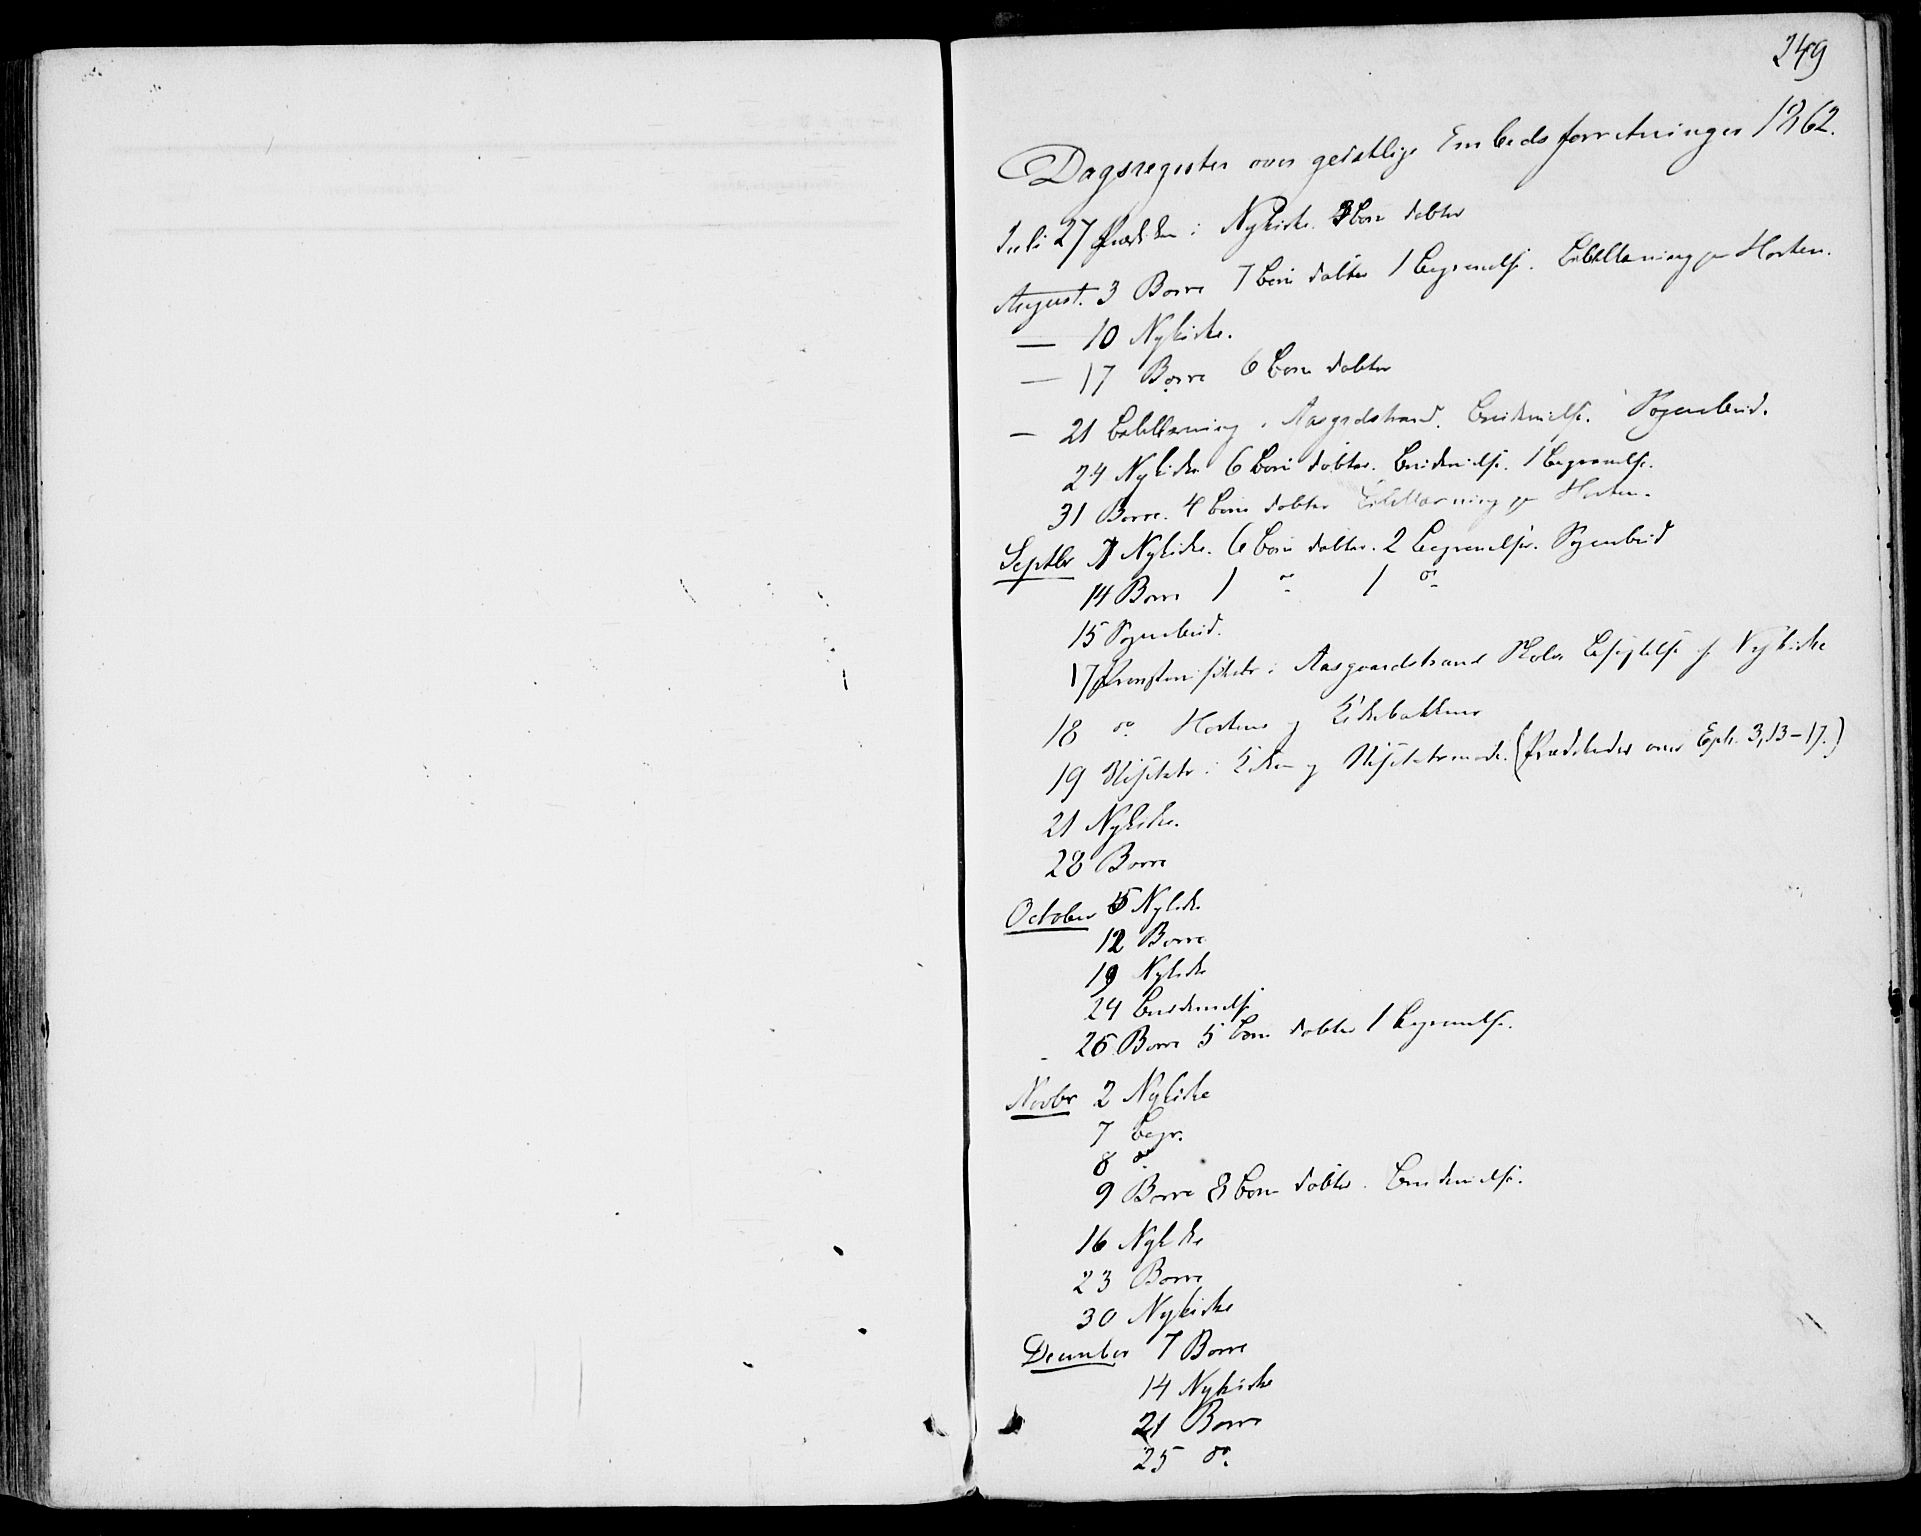 249
Dagsregister over geistlige Embedsforretninger 1862.
Juli 27 Prædiken i Nykirke. 3 Børn døbte
August. 3 Borre 7 Børn døbte 1 Begravelse. Bibellæsning paa Horten.
— 10 Nykirke.
— 17 Borre 6 Børn døbte
— 21 Bibellæsning i Aasgaardstrand. Berettelse. Sognebud.
24 Nykirke 6 Børn døbte. 1 Begravelse.
31 Borre. 4 Børn døbte Bibellæsning paa Horten.
Septbr 7 Nykirke. 6 Børn døbte. 2 Begravelser. Sognebud
14 Borre 1 do 1 do
15 Sognebud.
17 Provstevisitats i Aasgaardstrand Skole Besigtelse af Nykirke
18 do Hortens og Kirkebakkens
19 Visitats i Kirken og Visitatsmøde. (Prædikede over Eph. 3,13-17.)
21 Nykirke.
28 Borre
October 5 Nykirke
12 Borre
19 Nykirke
24
26 Borre 5 Børn døbte 1 Begravelse.
Novbr 2 Nykirke
7 Begr.
8 do
9 Borre 8 Børn døbte.
16 Nykirke
23 Borre
30 Nykirke
December 7 Borre
14 Nykirke
21 Borre
25 do